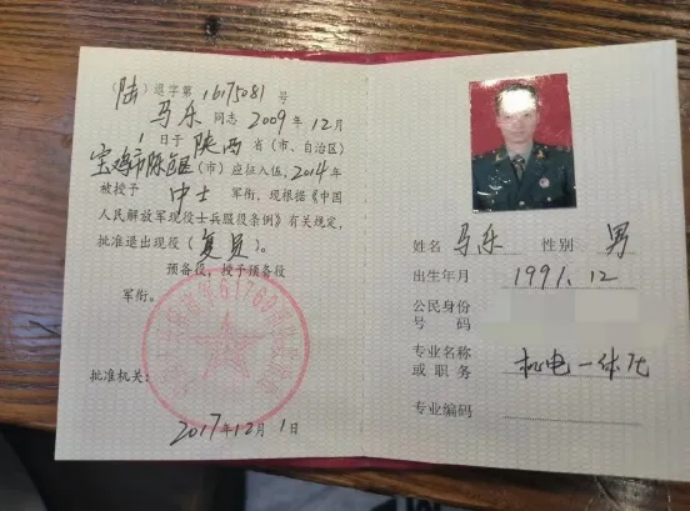 （陆）退字第16175081号
马乐 同志2009年12月
1日于陕西省（市、自治区）
宝鸡市陈仓区（市）应征入伍，2014年
被授予 中士 军衔，现根据《中国
人民解放军现役士兵服役条例》有关规定，
批准退出现役（复员）。
预备役，授予预备役
军衔。
批准机关：
2017年12月1日
姓名 马乐 性别 男
出生年月 1991.12
公民身份
号码
专业名称 机电一体化
或职务
专业编码